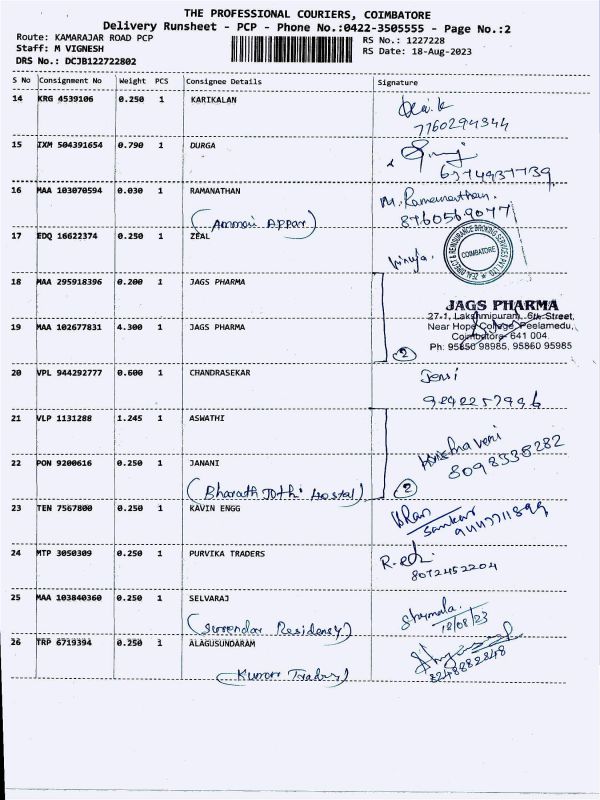 THE PROFESSIONAL COURIERS, COIMBATORE
Delivery Runsheet - PCP - Phone No.:0422-3505555 - Page No.:2
Route: KAMARAJAR ROAD PCP
RS No.: 1227228
Staff: M VIGNESH
RS Date: 18-Aug-2023
DRS No.: DCJB122722802
S No Consignment No Weight PCS Consignee Details Signature
14 KRG 4539106 0.250 1 KARIKALAN
7760294344
15 IXM 504391654 0.790 1 DURGA
16 MAA 103070594 0.030 1 RAMANATHAN M. Ramanathan.
8760569077
(Ammai Appar)
17 EDQ 16622374 0.250 1 ZEAL
ZEAL DIRECT & REINSURANCE BROKING SERVICES PVT LTD
COIMBATORE
18 MAA 295918396 0.200 1 JAGS PHARMA
JAGS PHARMA
27-1, Lakshmipuram, 6th Street,
19 MAA 102677831 4.300 1 JAGS PHARMA Near Hope College, Peelamedu,
Coimbatore- 641 004.
2 Ph: 95850 98985, 95860 95985
20 VPL 944292777 0.600 1 CHANDRASEKAR Jensi
9242257996
21 VLP 1131288 1.245 1 ASWATHI
22 PON 9200616 0.250 1 JANANI 8098535282
(Bharath Jothi Hostal) 2
23 TEN 7567800 0.250 1 KAVIN ENGG
Sankar
24 MTP 3050309 0.250 1 PURVIKA TRADERS
8072452204
25 MAA 103840360 0.250 1 SELVARAJ Sharmala.
(Surrendar Residency) 18/08/23
26 TRP 6719394 0.250 1 ALAGUSUNDARAM
8248882848
(Kumar Traders)